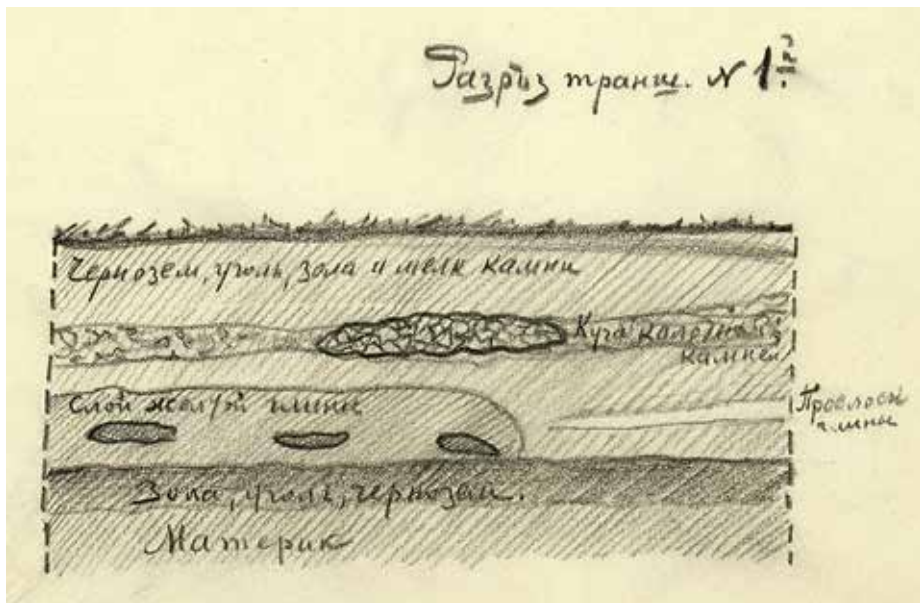 Разрѣз транш. N 1 ?
Чернозем, уголь, зола и мелк камни
Куча колотых
камней
слой желтой глины
Прослой
глины
Зола, уголь, чернозем.
Материк